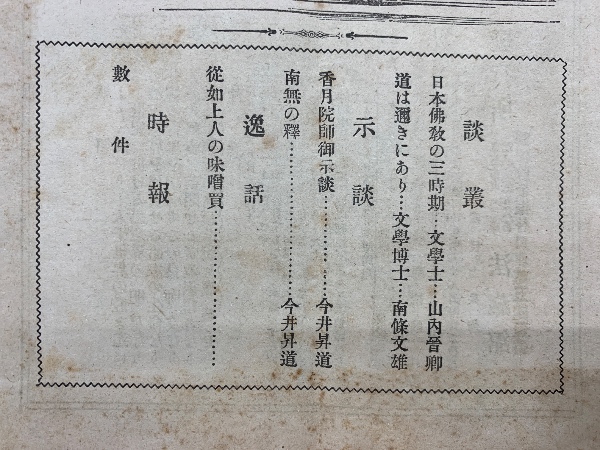 談叢
日本佛敎の三時期…文學士…山內晉卿
道は邇きにあり…文學博士…南條文雄
示談
香月院師御示談…………今井昇道
南無の釋…………………今井昇道
逸話
從如上人の味噌買…………………
時報
數件